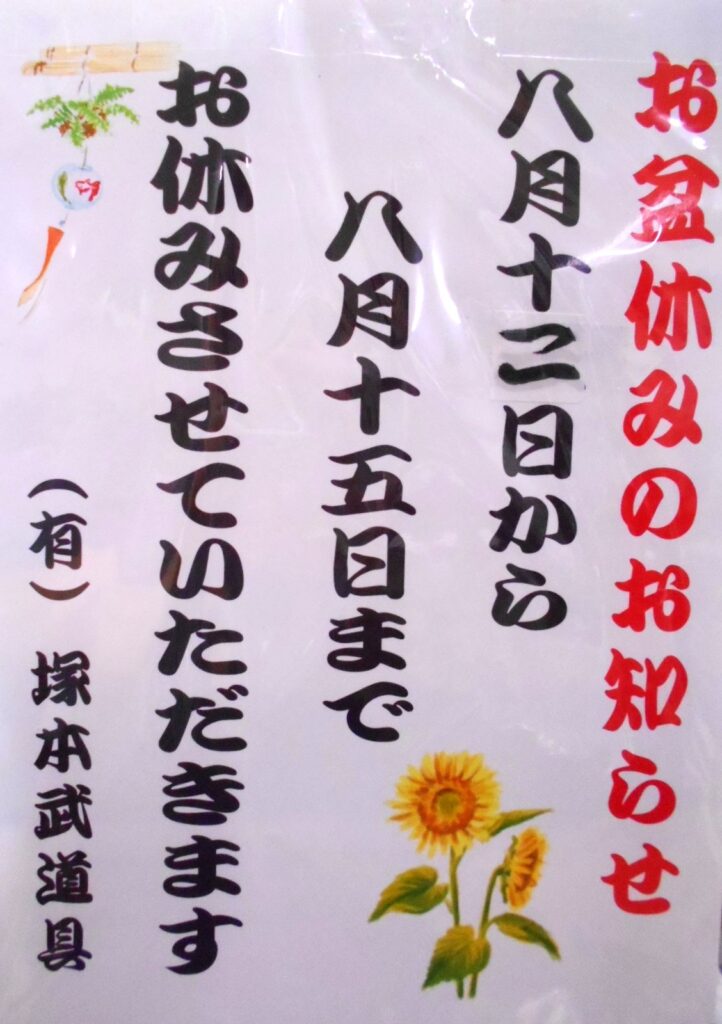 お盆休みのお知らせ
八月十二日から
八月十五日まで
お休みさせていただきます
（有）　塚本武道具